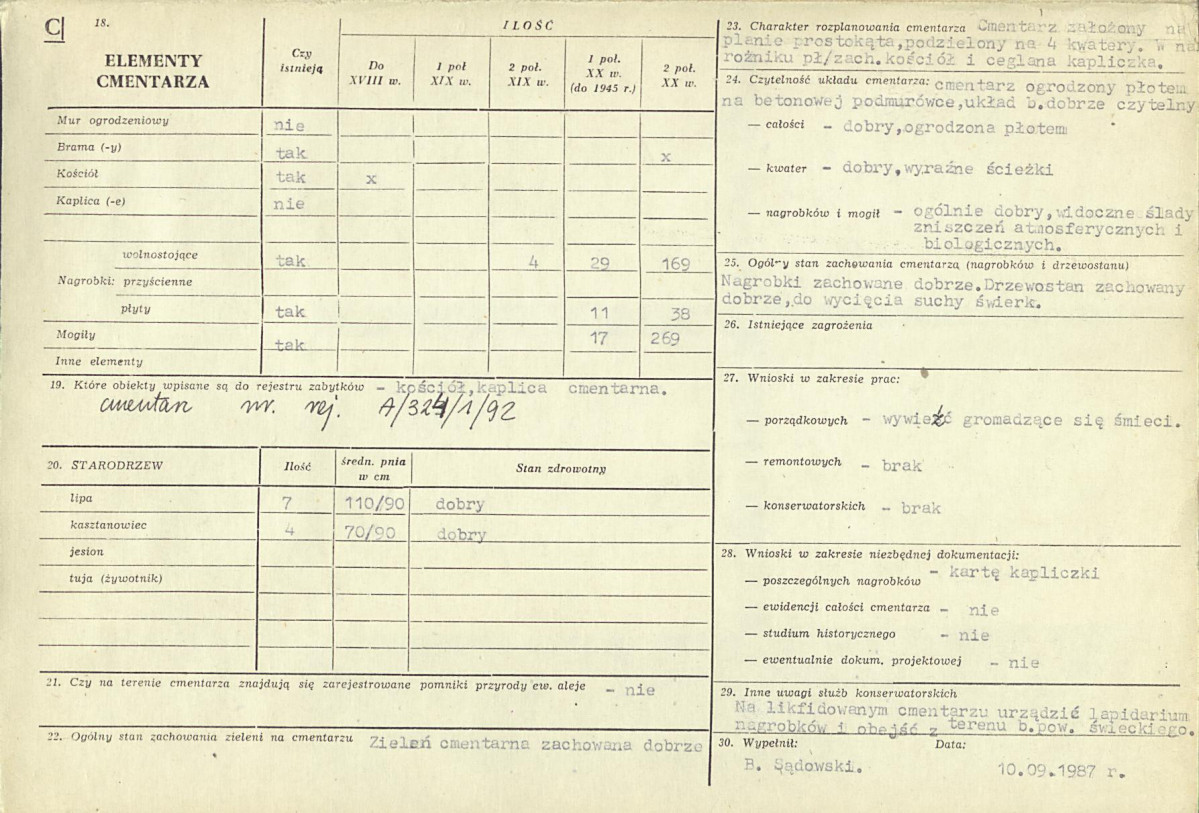 C 18.
ELEMENTY
CMENTARZA
Czy
istnieją
ILOŚĆ
Do
XVIII w.
1 poł
XIX w.
2 poł.
XIX w.
1 poł.
XX w.
(do 1945 r.)
2 poł.
XX w.
Mur ogrodzeniowy nie
Brama (-y) tak x
Kościół tak x
Kaplica (-e) nie
wolnostojące tak 4 29 169
Nagrobki: przyścienne
płyty tak 11 38
Mogiły tak 17 269
Inne elementy
19. Które obiekty wpisane są do rejestru zabytków - kościół,kaplica cmentarna.
cmentarz nr. rej. A/324/1/92
20. STARODRZEW Ilość średn. pnia
w cm Stan zdrowotny
lipa 7 110/90 dobry
kasztanowiec 4 70/90 dobry
jesion
tuja (żywotnik)
21. Czy na terenie cmentarza znajdują się zarejestrowane pomniki przyrody ew. aleje - nie
22. Ogólny stan zachowania zieleni na cmentarzu Zieleń cmentarna zachowana dobrze
23. Charakter rozplanowania cmentarza Cmentarz założony na
planie prostokąta,podzielony na 4 kwatery. W na
rożniku pł/zach.kościół i ceglana kapliczka.
24. Czytelność układu cmentarza: cmentarz ogrodzony płotem
na betonowej podmurówce,układ b.dobrze czytelny
— całości - dobry,ogrodzona płotem
— kwater - dobry,wyraźne ścieżki
— nagrobków i mogił - ogólnie dobry,widoczne ślady
zniszczeń atmosferycznych i
biologicznych.
25. Ogólny stan zachowania cmentarza (nagrobków i drzewostanu)
Nagrobki zachowane dobrze.Drzewostan zachowany
dobrze,do wycięcia suchy świerk.
26. Istniejące zagrożenia
27. Wnioski w zakresie prac:
— porządkowych - wywieźć gromadzące się śmieci.
— remontowych - brak
— konserwatorskich - brak
28. Wnioski w zakresie niezbędnej dokumentacji:
— poszczególnych nagrobków - kartę kapliczki
— ewidencji całości cmentarza - nie
— studium historycznego - nie
— ewentualnie dokum. projektowej - nie
29. Inne uwagi służb konserwatorskich
Na likfidowanym cmentarzu urządzić lapidarium
nagrobków i obejść z terenu b.pow. świeckiego.
30. Wypełnił: Data:
B. Sądowski. 10.09.1987 r.